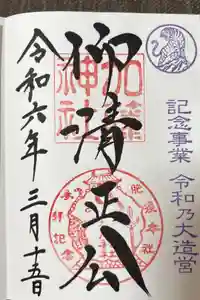 記念事業 令和乃大造営
仰清正公
加藤神社
令和六年三月十五日